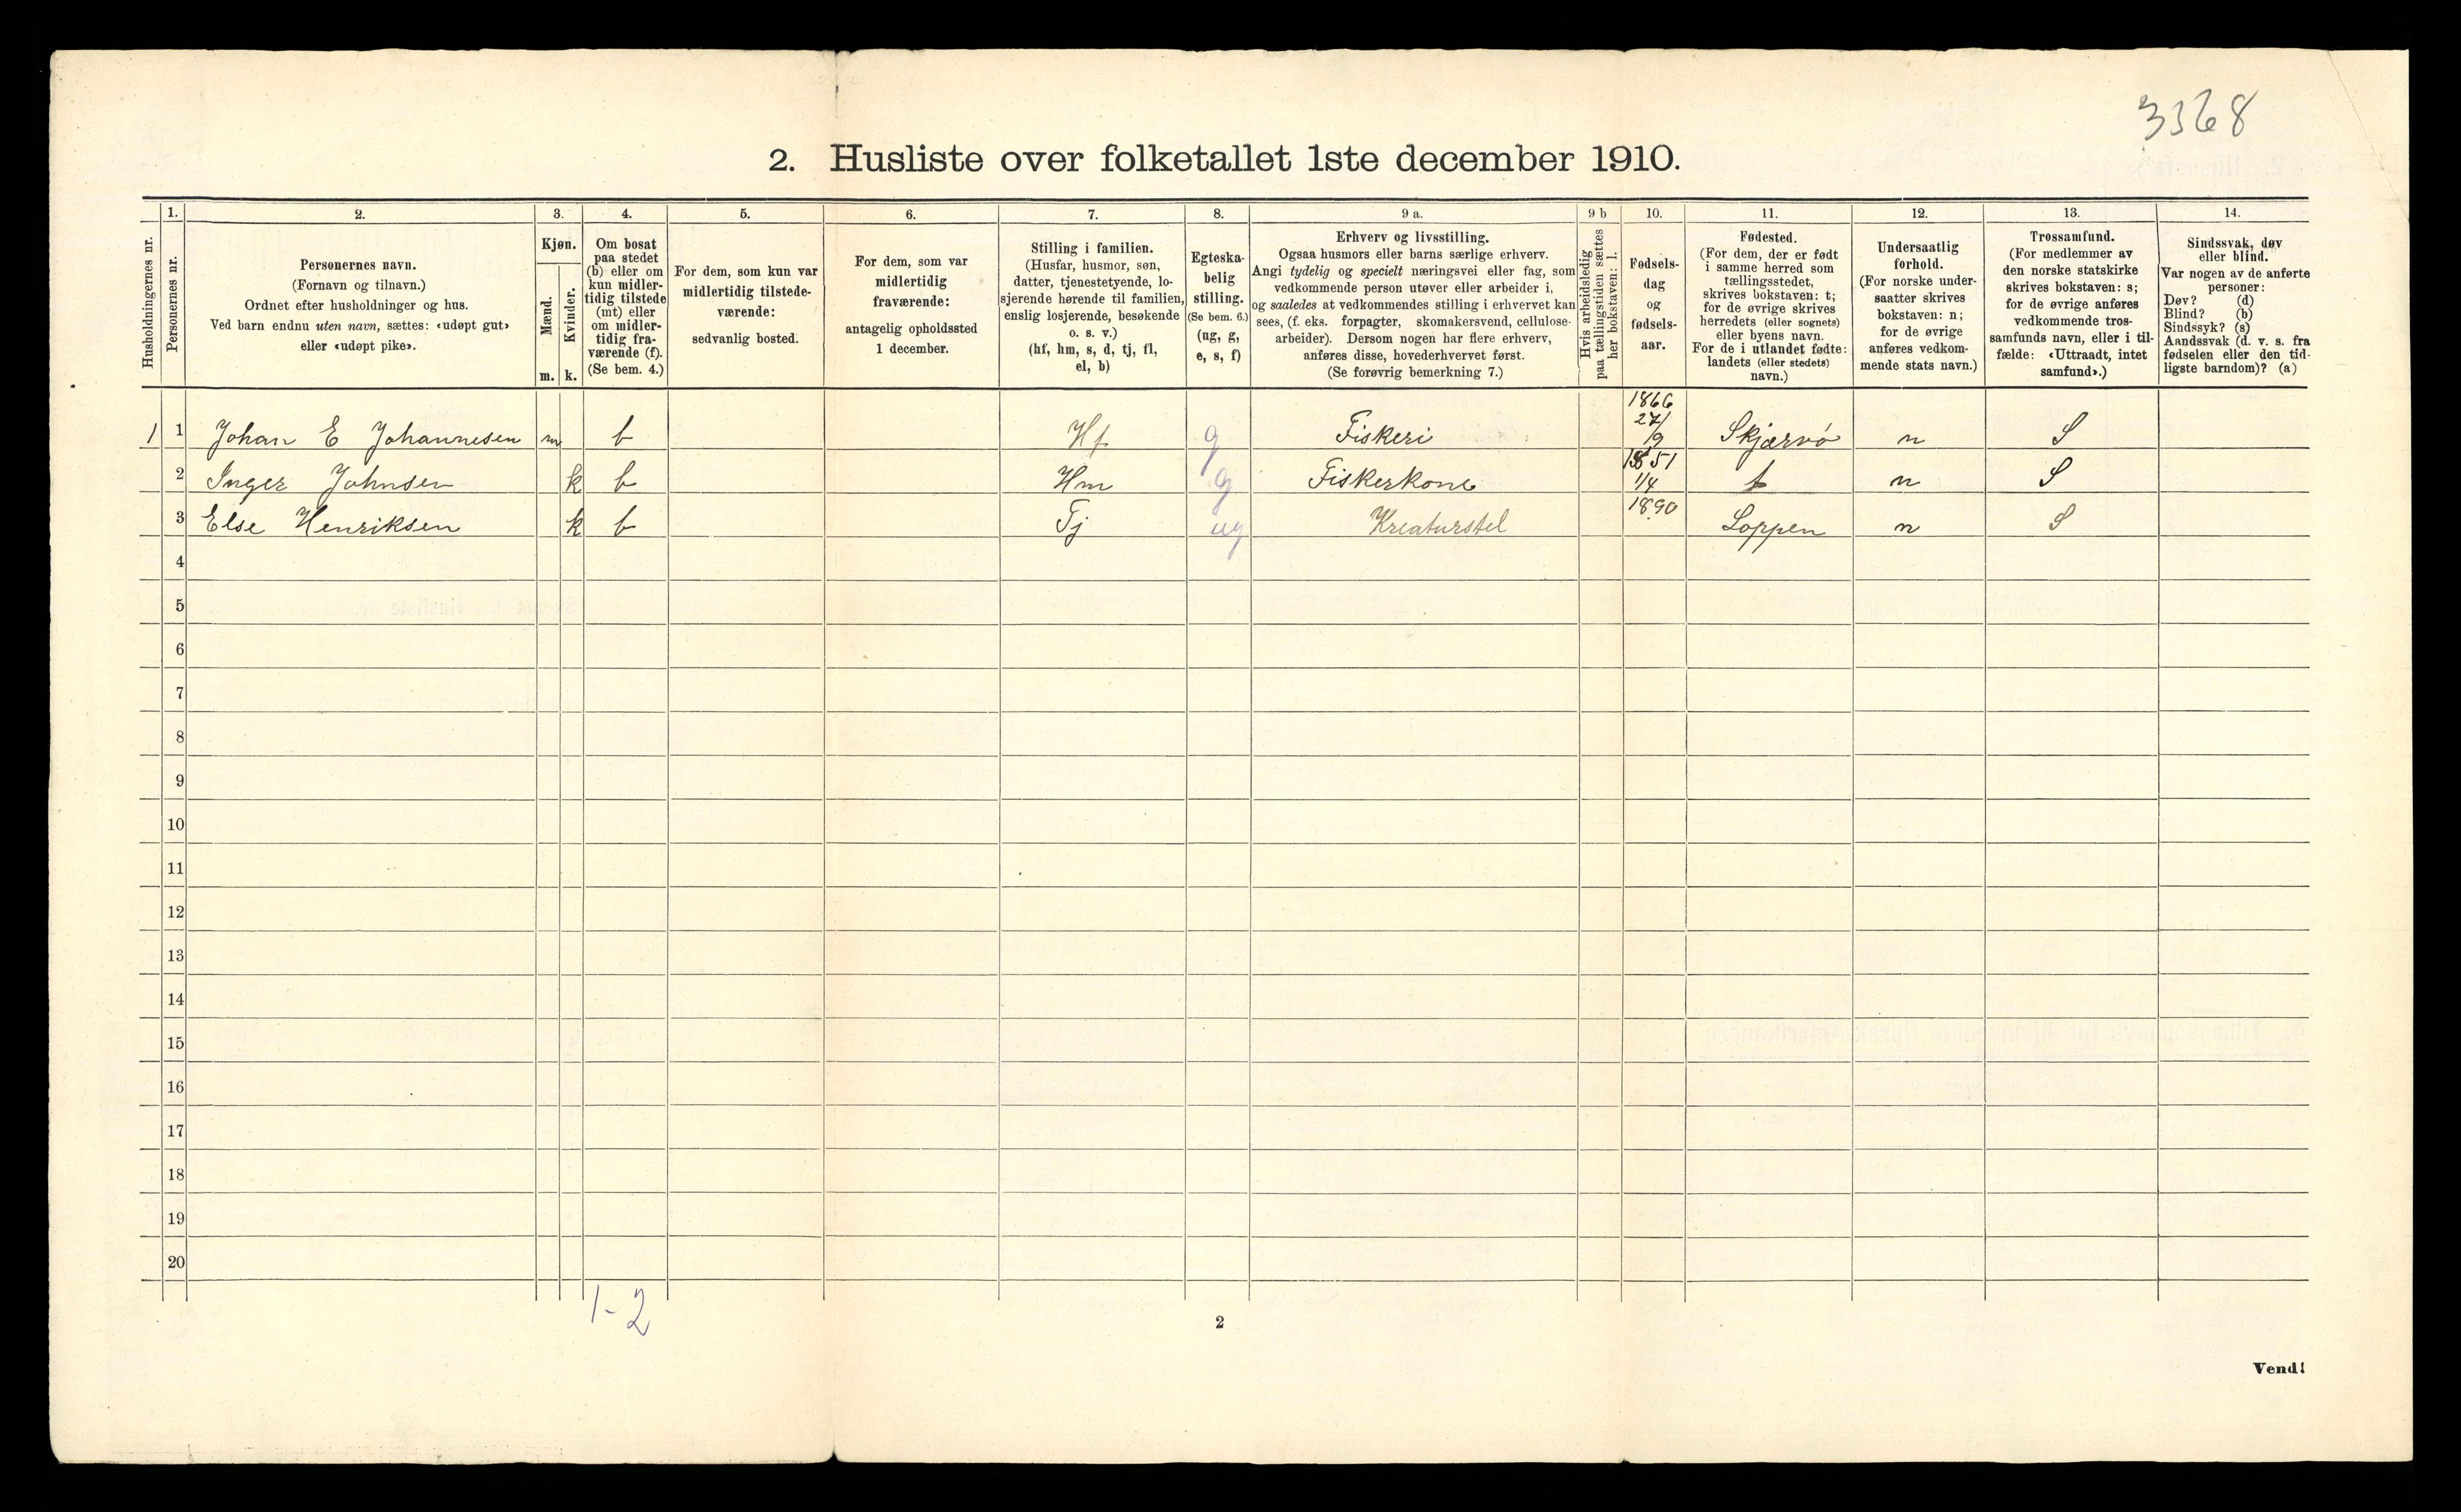 3368
2. Husliste over folketallet 1ste december 1910.
Husholdningernes nr.
1.
Personernes nr.
2.
Personernes navn.
(Fornavn og tilnavn.)
Ordnet efter husholdninger og hus.
Ved barn endnu uten navn, sættes: «udøpt gut»
eller «udøpt pike».
3.
Kjøn.
Mænd.
Kvinder.
m. k.
4.
Om bosat
paa stedet
(b) eller om
kun midler-
tidig tilstede
(mt) eller
om midler-
tidig fra-
værende (f).
(Se bem. 4.)
5.
For dem, som kun var
midlertidig tilstede-
værende:
sedvanlig bosted.
6.
For dem, som var
midlertidig
fraværende:
antagelig opholdssted
1 december.
7.
Stilling i familien.
(Husfar, husmor, søn,
datter, tjenestetyende, lo-
sjerende hørende til familien,
enslig losjerende, besøkende
o. s. v.)
(hf, hm, s, d, tj, fl,
el, b)
8.
Egteska-
belig
stilling.
(Se bem. 6.)
(ug, g,
e, s, f)
9 a.
Erhverv og livsstilling.
Ogsaa husmors eller barns særlige erhverv.
Angi tydelig og specielt næringsvei eller fag, som
vedkommende person utøver eller arbeider i,
og saaledes at vedkommendes stilling i erhvervet kan
sees, (f. eks. forpagter, skomakersvend, cellulose-
arbeider). Dersom nogen har flere erhverv,
anføres disse, hovederhvervet først.
(Se forøvrig bemerkning 7.)
9 b
Hvis arbeidsledig
paa tællingstiden sættes
her bokstaven: l.
10.
Fødsels-
dag
og
fødsels-
aar.
11.
Fødested.
(For dem, der er født
i samme herred som
tællingsstedet,
skrives bokstaven: t;
for de øvrige skrives
herredets (eller sognets)
eller byens navn.
For de i utlandet fødte:
landets (eller stedets)
navn.)
12.
Undersaatlig
forhold.
(For norske under-
saatter skrives
bokstaven: n;
for de øvrige
anføres vedkom-
mende stats navn.)
13.
Trossamfund.
(For medlemmer av
den norske statskirke
skrives bokstaven: s;
for de øvrige anføres
vedkommende tros-
samfunds navn, eller i til-
fælde: «Uttraadt, intet
samfund».)
14.
Sindssvak, døv
eller blind.
Var nogen av de anførte
personer:
Døv? (d)
Blind? (b)
Sindssyk? (s)
Aandssvak (d. v. s. fra
fødselen eller den tid-
ligste barndom)? (a)
1 1 Johan E Johannesen m b Hf g Fiskeri 1866 27/9 Skjærvø n S
2 Inger Johnsen k b Hm g Fiskerkone 1851 1/4 t n S
3 Else Henriksen k b Tj ug Kreaturstel 1890 Loppen n S
4
5
6
7
8
9
10
11
12
13
14
15
16
17
18
19
20
1-2
2
Vend!